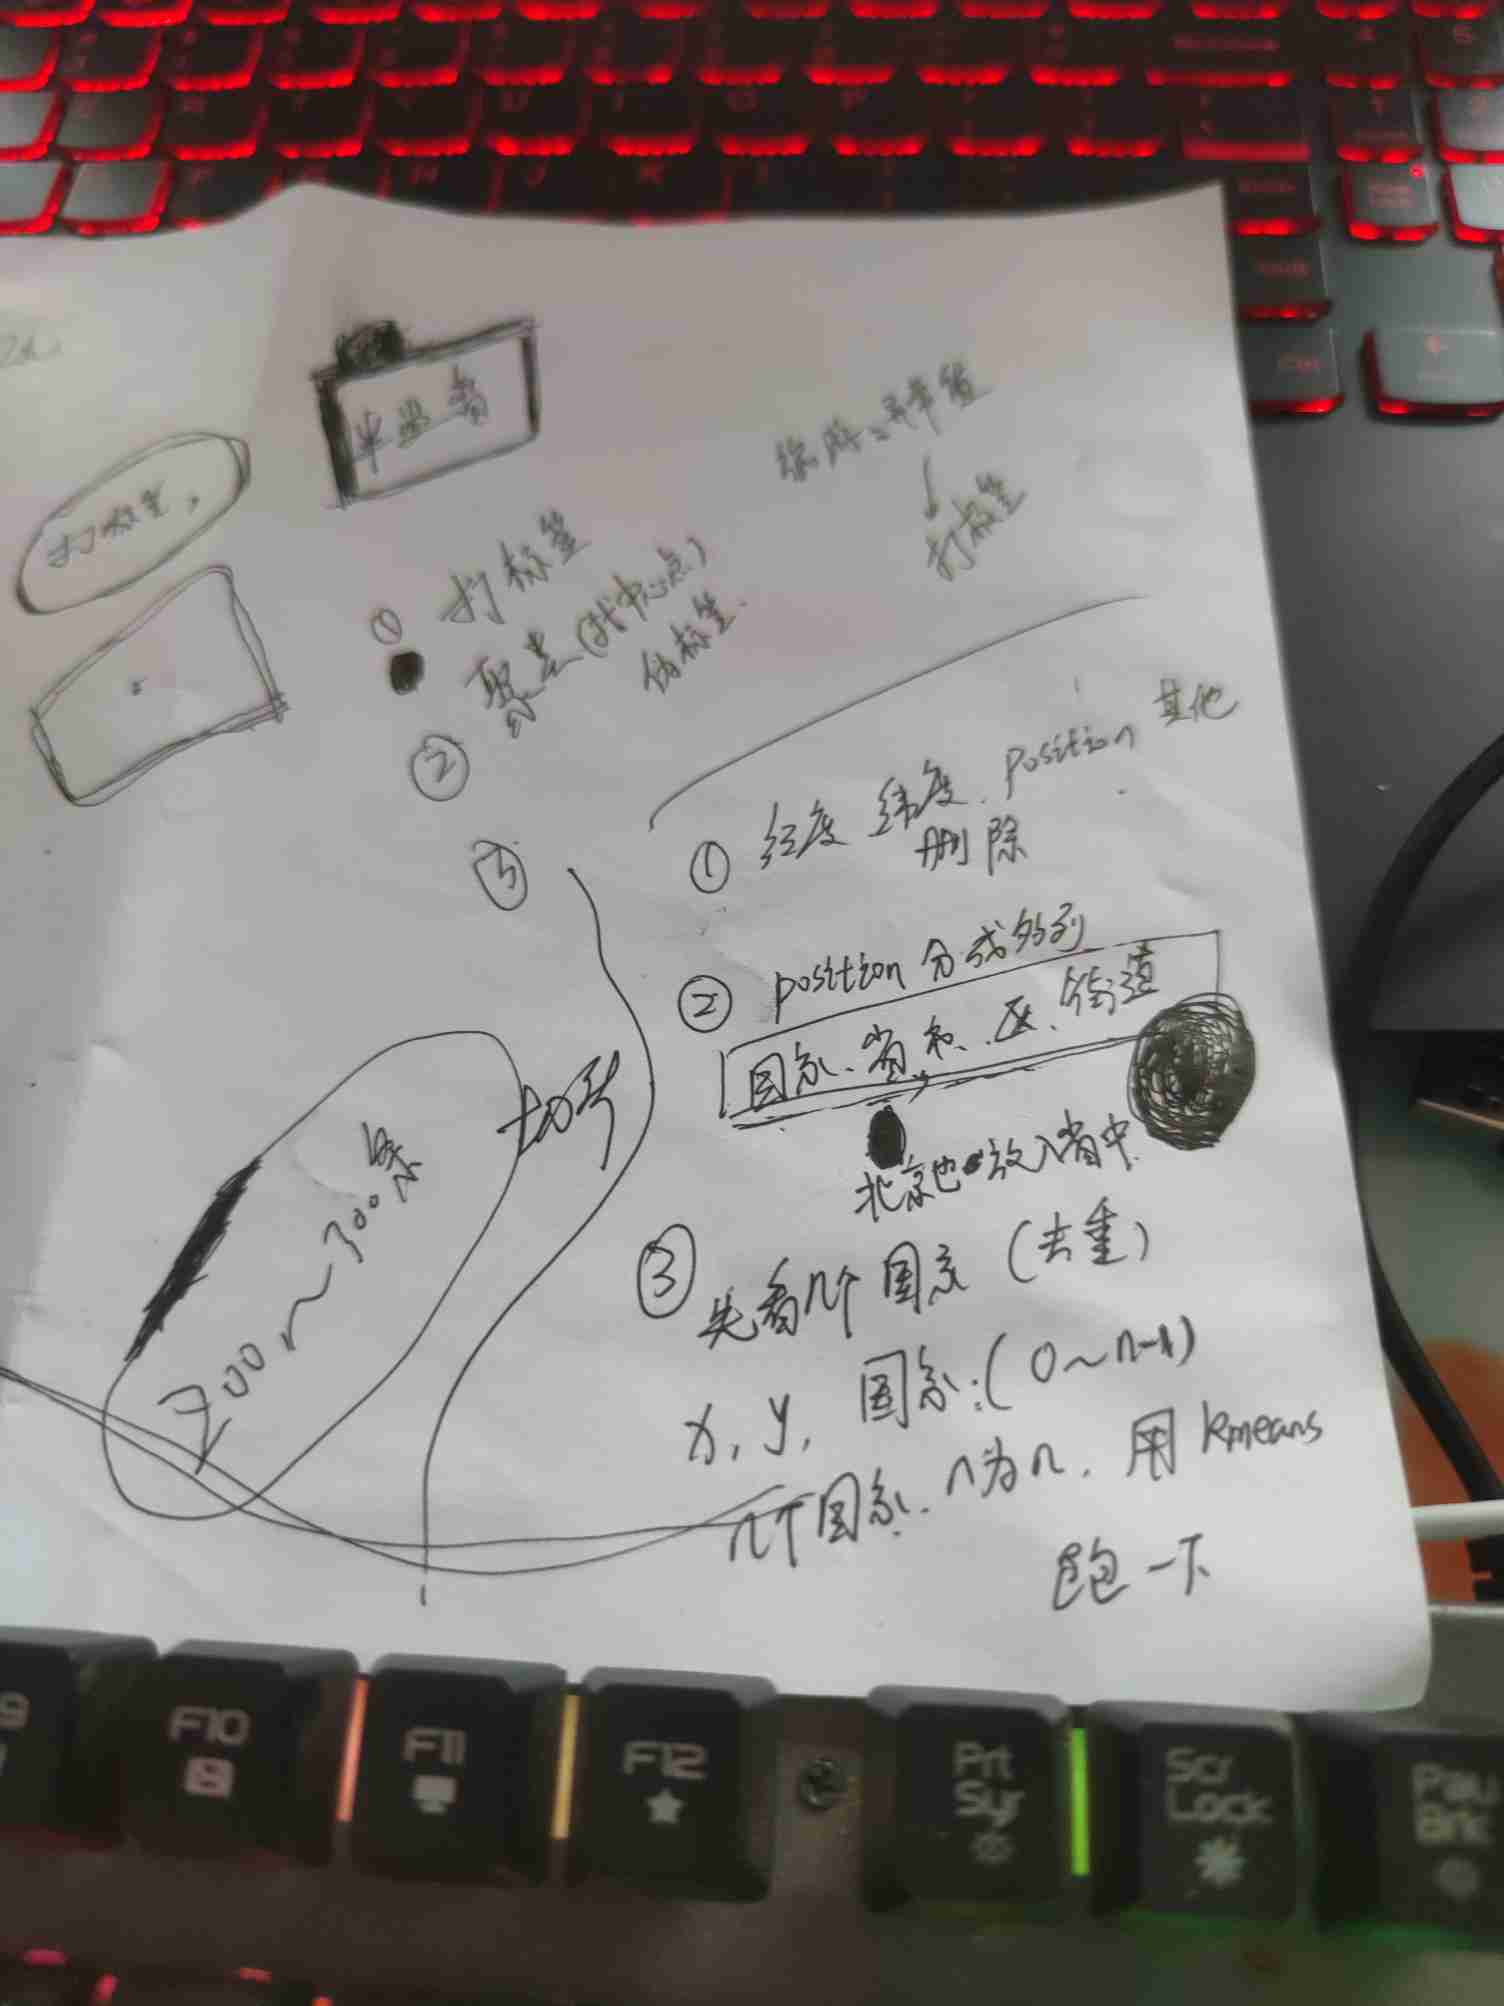 半监督
打标签,
① 打标签
聚类(找中心点)
伪标签.
②
③
异常值
打标签
① 经度 纬度. position 其他
删除
② position 分成多列
国家、省市、区、街道
北京也放入省中
③ 先看几个国家 (去重)
x, y, 国家:(0~n-1)
几个国家. n为n. 用 kmeans
跑一下
200~300条
F10
F11
F12
Prt
Scr
Lock
Pau
Brk